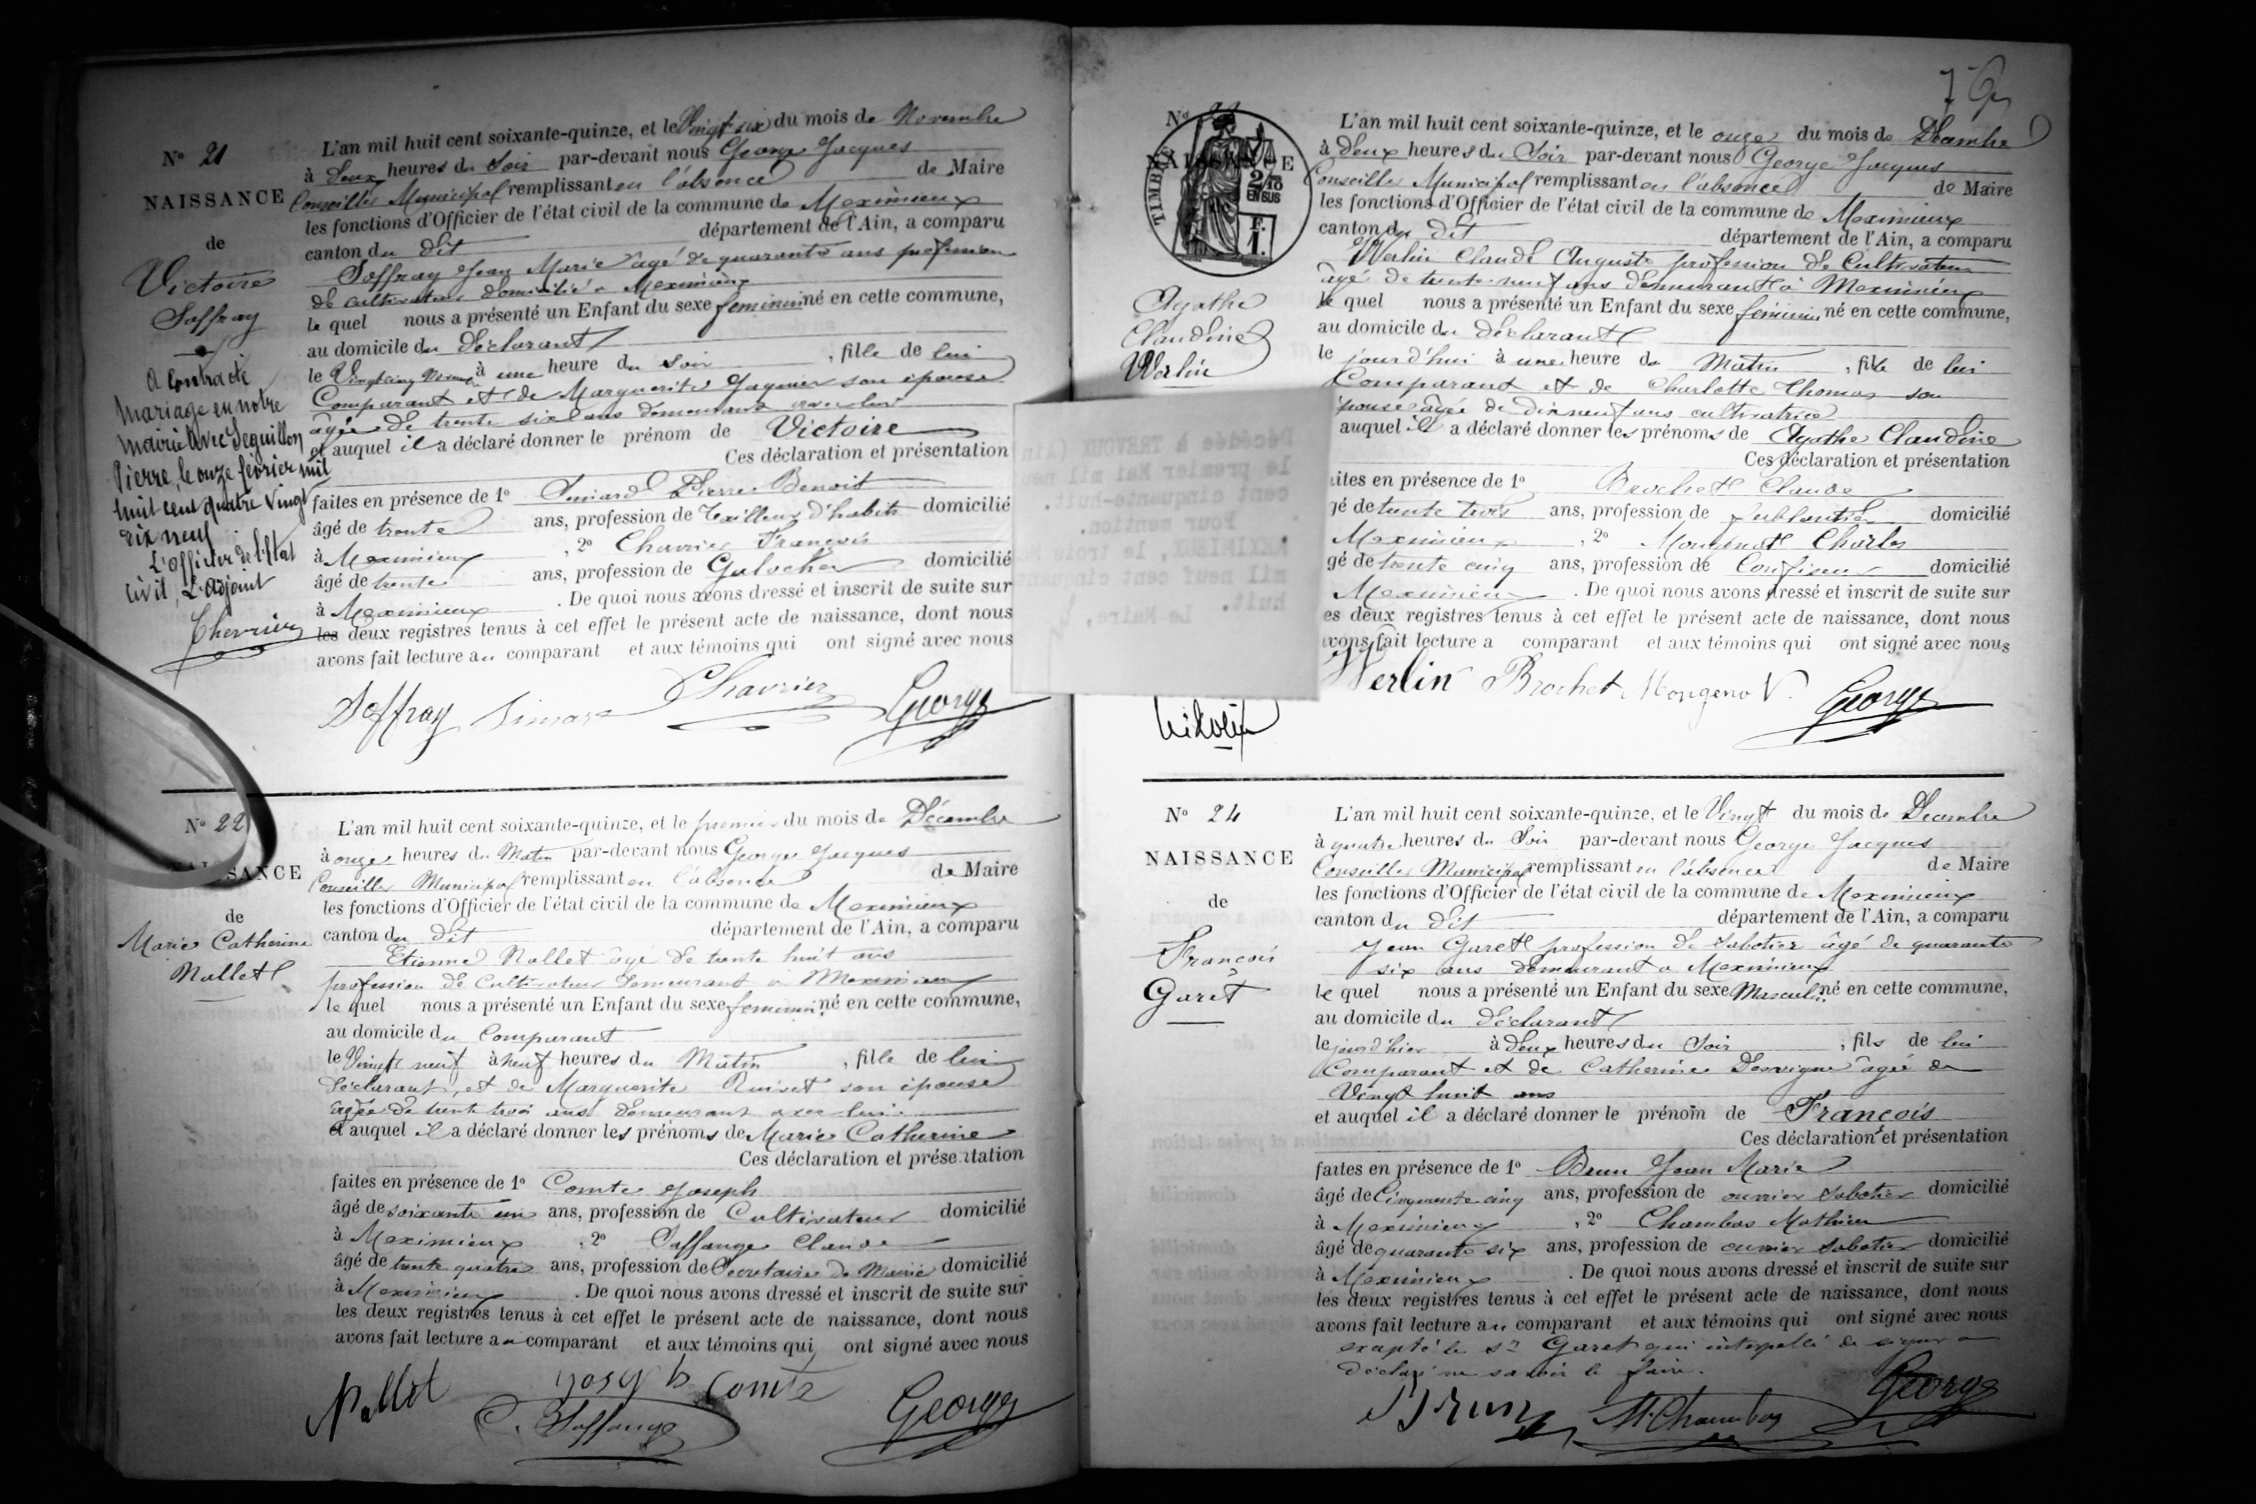 N° 21
NAISSANCE
de
Victoire
Soffray
a contracté
mariage en notre
mairie avec Seguillon
Pierre, le onze février mil
huit cent quatre vingt
dix neuf
L'officier de l'état
civil, L'adjoint
Chevrier
L'an mil huit cent soixante-quinze, et le Vingt six du mois de Novembre
à Deux heures du Soir par-devant nous George Jacques
Conseiller Municipal remplissant en l'absence de Maire
les fonctions d'Officier de l'état civil de la commune de Meximieux
canton du dit département de l'Ain, a comparu
Soffray Jean Marie agé de quarante ans profession
de cultivateur domicilié a Meximieux
le quel nous a présenté un Enfant du sexe feminin né en cette commune,
au domicile du Déclarant
le Vingt cinq à une heure du soir , fille de lui
Comparant et de Marguerite Jagmier son épouse
agée de trente six ans demeurant avec lui
et auquel il a déclaré donner le prénom de Victoire
Ces déclaration et présentation
faites en présence de 1° Simard Pierre Benoit
âgé de trente ans, profession de Tailleur d'habits domicilié
à Meximieux , 2° Chavrier François
âgé de trente ans, profession de Galocher domicilié
à Meximieux . De quoi nous avons dressé et inscrit de suite sur
les deux registres tenus à cet effet le présent acte de naissance, dont nous
avons fait lecture au comparant et aux témoins qui ont signé avec nous
Soffray Simard Chavrier George
N° 22
NAISSANCE
de
Marie Catherine
Nallet
L'an mil huit cent soixante-quinze, et le premier du mois de Décembre
à onze heures du Matin par-devant nous George Jacques
Conseiller Municipal remplissant en l'absence de Maire
les fonctions d'Officier de l'état civil de la commune de Meximieux
canton du dit département de l'Ain, a comparu
Etienne Nallet agé de trente huit ans
profession de Cultivateur demeurant à Meximieux
le quel nous a présenté un Enfant du sexe feminin né en cette commune,
au domicile du Comparant
le Vingt neuf à neuf heures du Matin , fille de lui
Déclarant, et de Marguerite son épouse
agée de trente trois ans demeurant avec lui
et auquel il a déclaré donner les prénoms de Marie Catherine
Ces déclaration et présentation
faites en présence de 1° Comte Joseph
âgé de soixante un ans, profession de Cultivateur domicilié
à Meximieux , 2° Saffange Claude
âgé de trente quatre ans, profession de Secretaire de Mairie domicilié
à Meximieux . De quoi nous avons dressé et inscrit de suite sur
les deux registres tenus à cet effet le présent acte de naissance, dont nous
avons fait lecture au comparant et aux témoins qui ont signé avec nous
Nallet Joseph Comte
C. Saffange George
N°
NAISSANCE
TIMBRE
2/10
EN SUS
F.
1.
Agathe
Claudine
Werlin
L'an mil huit cent soixante-quinze, et le onze du mois de Décembre
à Deux heures du Soir par-devant nous George Jacques
Conseiller Municipal remplissant en l'absence de Maire
les fonctions d'Officier de l'état civil de la commune de Meximieux
canton du dit département de l'Ain, a comparu
Werlin Claude Auguste profession de Cultivateur
agé de trente neuf ans demeurant à Meximieux
le quel nous a présenté un Enfant du sexe féminin né en cette commune,
au domicile du déclarant
le jourd'hui à une heure du Matin , fille de lui
Comparant et de Charlotte Thomas son
épouse agée de dix neuf ans cultivatrice
auquel il a déclaré donner les prénoms de Agathe Claudine
Ces déclaration et présentation
aites en présence de 1° Brochet Claude
gé de trente trois ans, profession de ferblantier domicilié
Meximieux , 2° Mongenot Charles
gé de trente cinq ans, profession de Confiseur domicilié
Meximieux . De quoi nous avons dressé et inscrit de suite sur
es deux registres tenus à cet effet le présent acte de naissance, dont nous
avons fait lecture a comparant et aux témoins qui ont signé avec nous
Werlin Brochet Mongenot George
Décédée à TREVOUX (Ain
le premier Mai mil neu
cent cinquante-huit.
Pour mention.
MEXIMIEUX, le trois
mil neuf cent cinquant
huit.
Le Maire,
N° 24
NAISSANCE
de
François
Garet
L'an mil huit cent soixante-quinze, et le Vingt du mois de Décembre
à quatre heures du Soir par-devant nous George Jacques
Conseiller Municipal remplissant en l'absence de Maire
les fonctions d'Officier de l'état civil de la commune de Meximieux
canton du dit département de l'Ain, a comparu
Jean Garet profession de Sabotier âgé de quarante
six ans demeurant a Meximieux
le quel nous a présenté un Enfant du sexe Masculin né en cette commune,
au domicile du Déclarant
le jour d'hier à deux heures du Soir , fils de lui
Comparant et de Catherine Desvigne agée de
Vingt huit ans
et auquel il a déclaré donner le prénom de François
Ces déclaration et présentation
faites en présence de 1° Brun Jean Marie
âgé de Cinquante cinq ans, profession de ouvrier Sabotier domicilié
à Meximieux , 2° Chambas Mathieu
âgé de quarante six ans, profession de ouvrier sabotier domicilié
à Meximieux . De quoi nous avons dressé et inscrit de suite sur
les deux registres tenus à cet effet le présent acte de naissance, dont nous
avons fait lecture au comparant et aux témoins qui ont signé avec nous
excepté le Sr Garet qui interpellé de signer a
déclaré ne savoir le faire.
Brun M. Chambas George